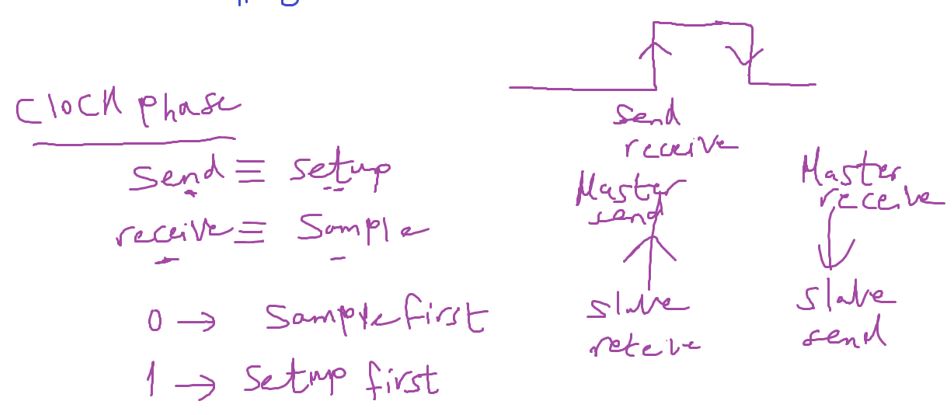 Clock phase
send ≡ setup
receive ≡ Sample
0 → Sample first
1 → Setup first
send
receive
Master
send
slave
receive
Master
receive
slave
send